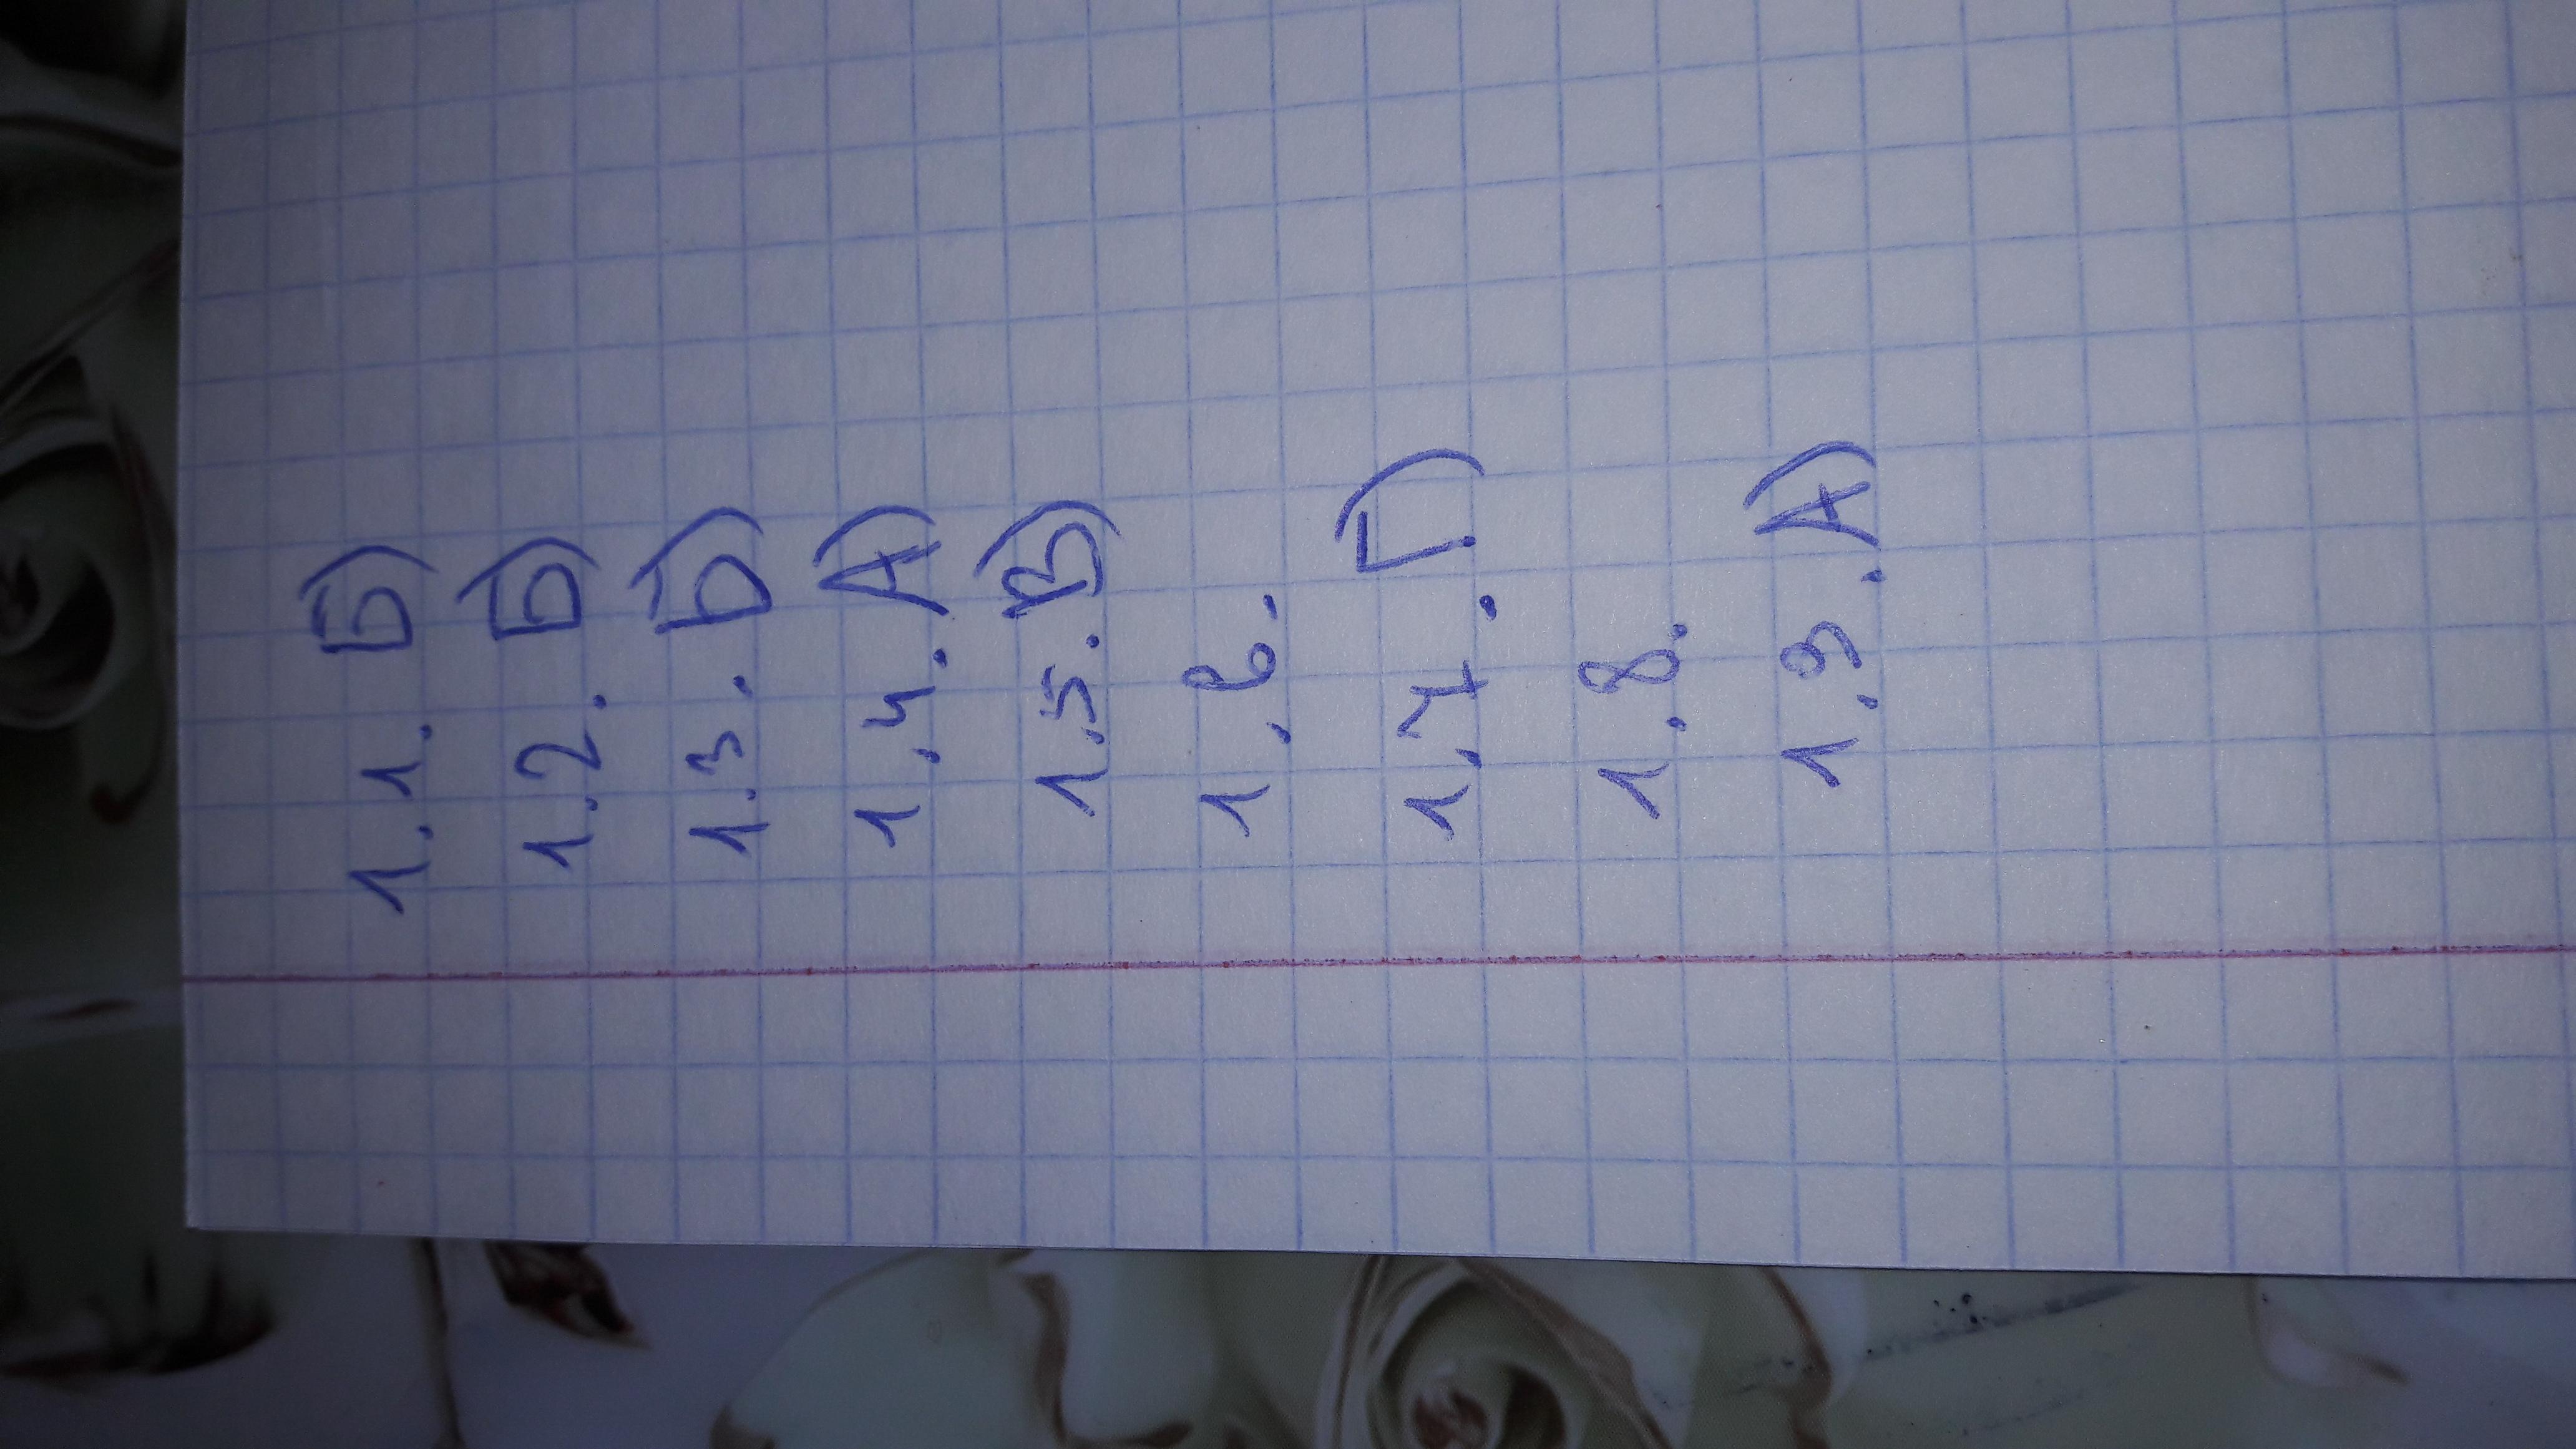 1.1. Б)
1.2. Б)
1.3. Б)
1.4. А)
1.5. В)
1.6.
1.7. Г)
1.8.
1.9. А)